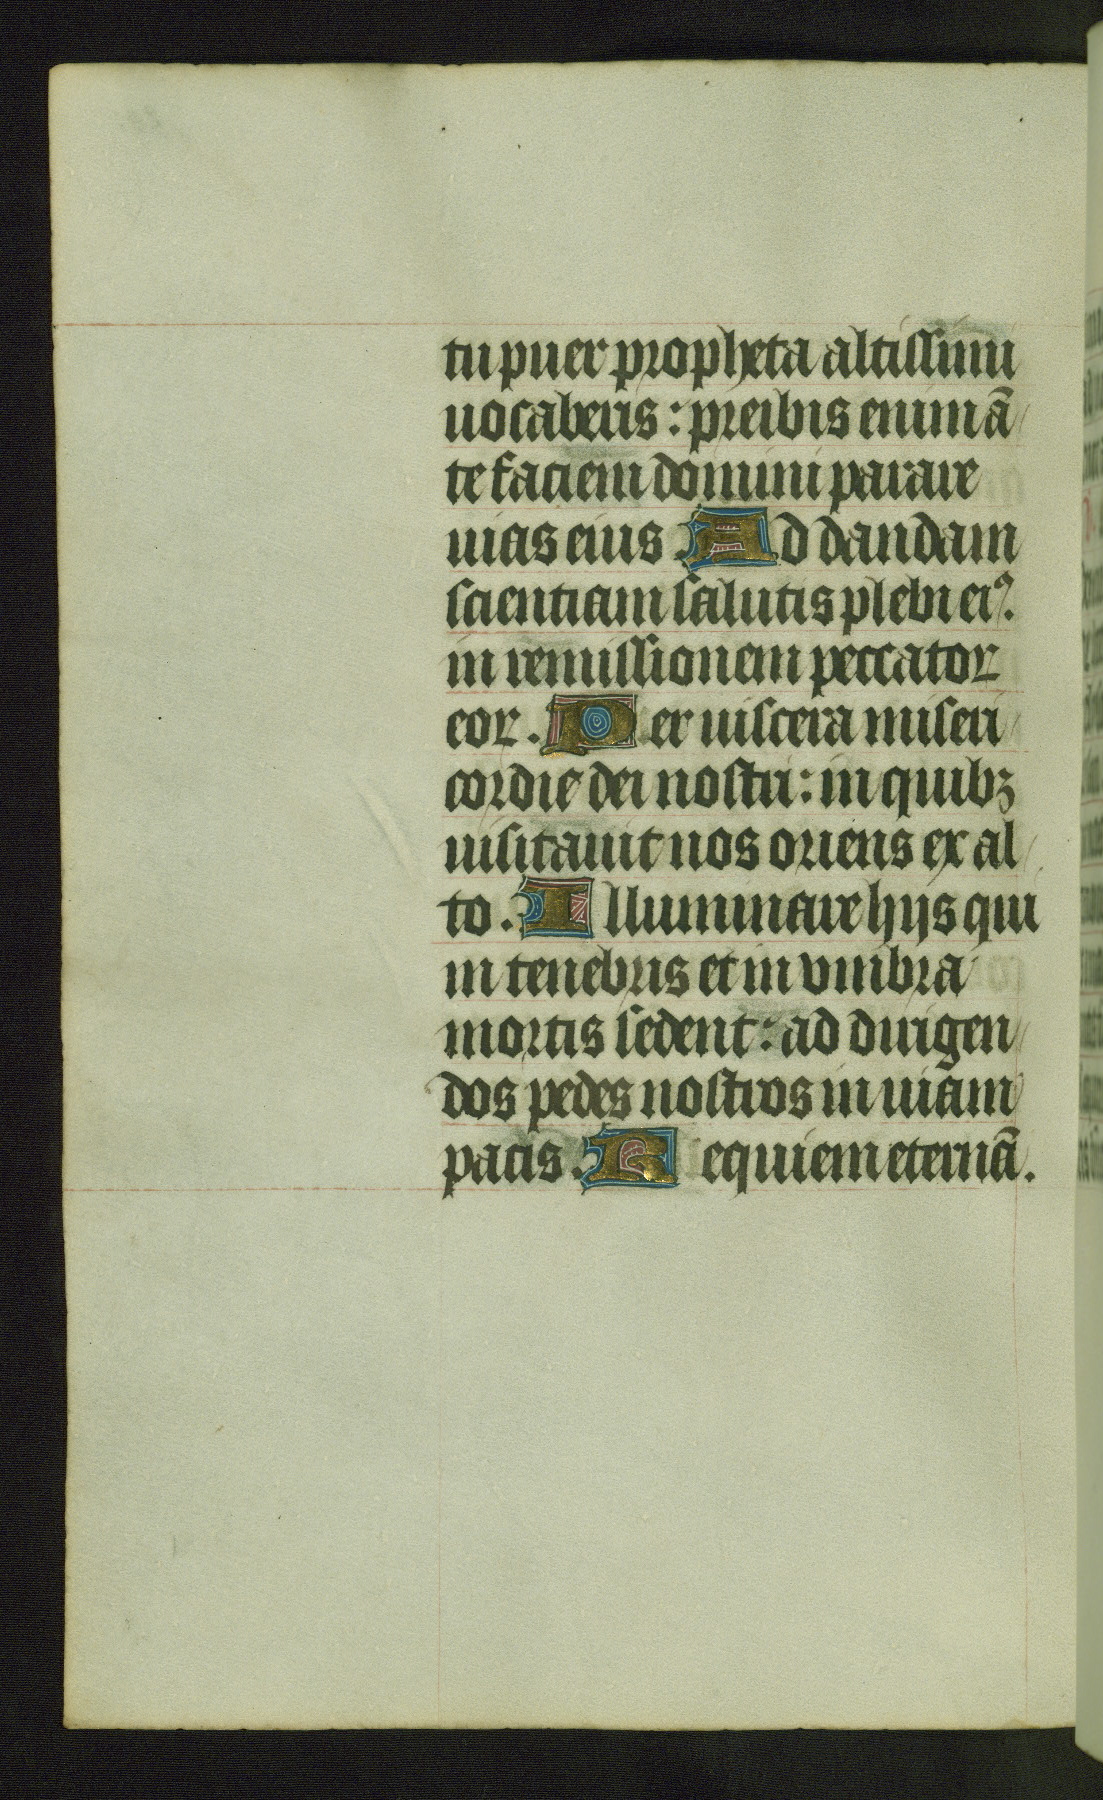 tu puer propheta altissimi
uocaberis : preibis enim ã
te faciem domini parare
uias eius . Ad dandam
scientiam salutis plebi eiꝰ.
in remissionem peccatoꝝ
eoꝝ . Per uiscera miseri
cordie dei nostri : in quibꝫ
uisitauit nos oriens ex al
to . Illuminare hijs qui
in tenebris et in vmbra
mortis sedent : ad dirigen
dos pedes nostros in uiam
pacis . Requiem eternã .